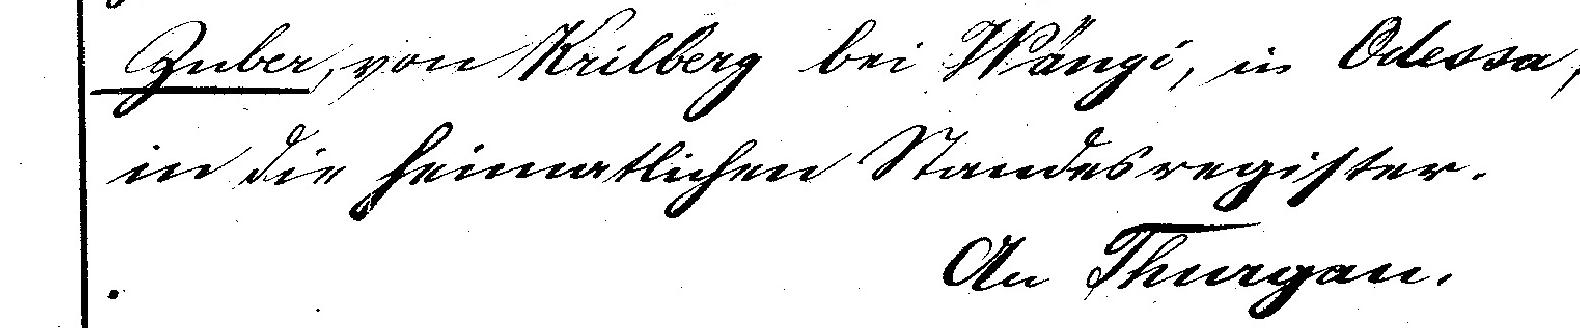 Zuber, von Krilberg bei Wängi, in Odessa,
in die heimatlichen Standesregister.
An Thurgau.